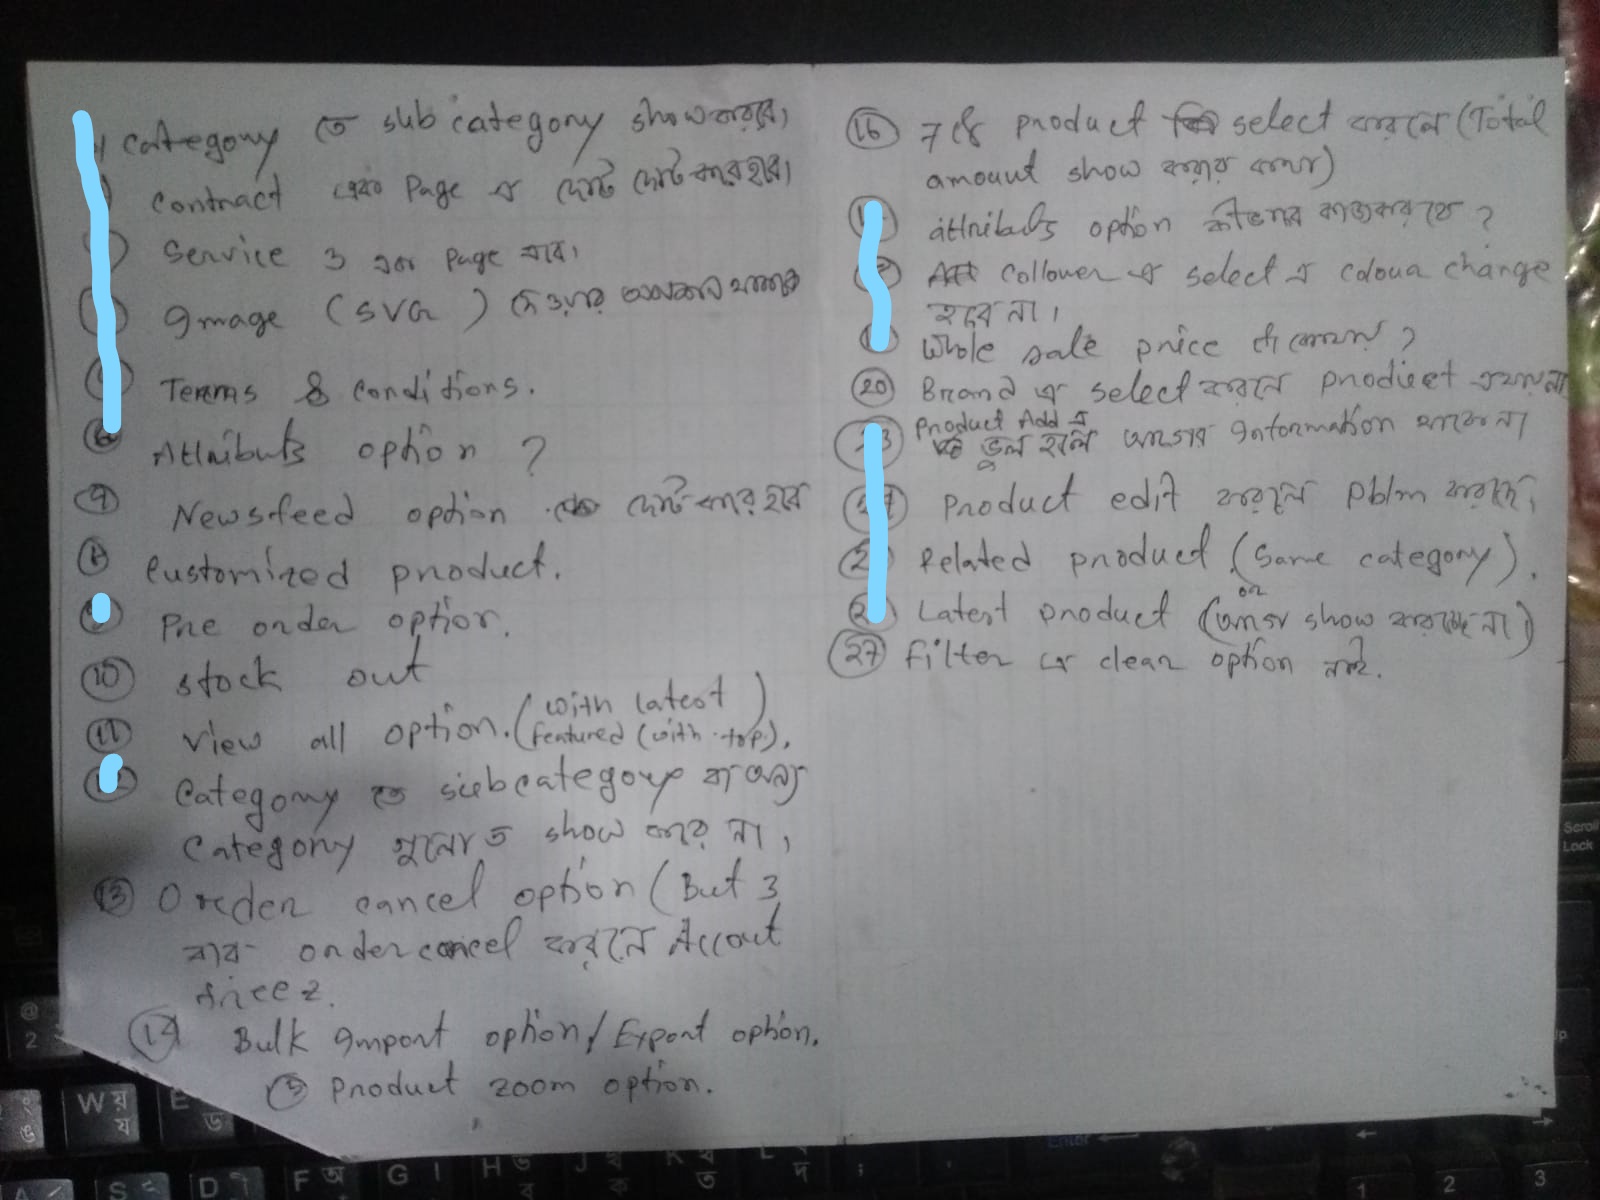 category তে sub category show করবে।
contract এবং Page এ ছোট ছোট করে হবে।
Service ও এক Page হবে।
Image (SVG)
Terms & conditions.
⑥ Attributs option ?
⑦ Newsfeed option ছোট করে হবে
⑧ Customized product.
Pre order option.
⑩ Stock out
⑪ View all option. (with latest)
featured (with top).
Category তে subcategory বা অন্য
Category গুলোতে show করে না,
⑬ Order cancel option (But 3
বার order cancel করলে Accout
freez.
⑭ Bulk Import option/ Export option.
Product zoom option.
⑯ product select করলে (Total
amount show করার কথা)
attributs option কীভাবে কাজ করবে ?
collour এ select এ colour change
হবে না।
Whole sale price কি কোথায় ?
⑳ Brand এ select করলে product দেখায় না
Product Add এ
ভুল হলে আগের Information থাকে না
Product edit করলে pblm করছে,
Related product. (Same category).
or
Latest product (আগের show করছে না)
㉗ filter এ clear option নাই.
Scroll
Lock
@
2
W
য়
য
E
ড
S
D
F
অ
G
H
J
K
ব
ত
L
দ
;
Enter
1
2
3